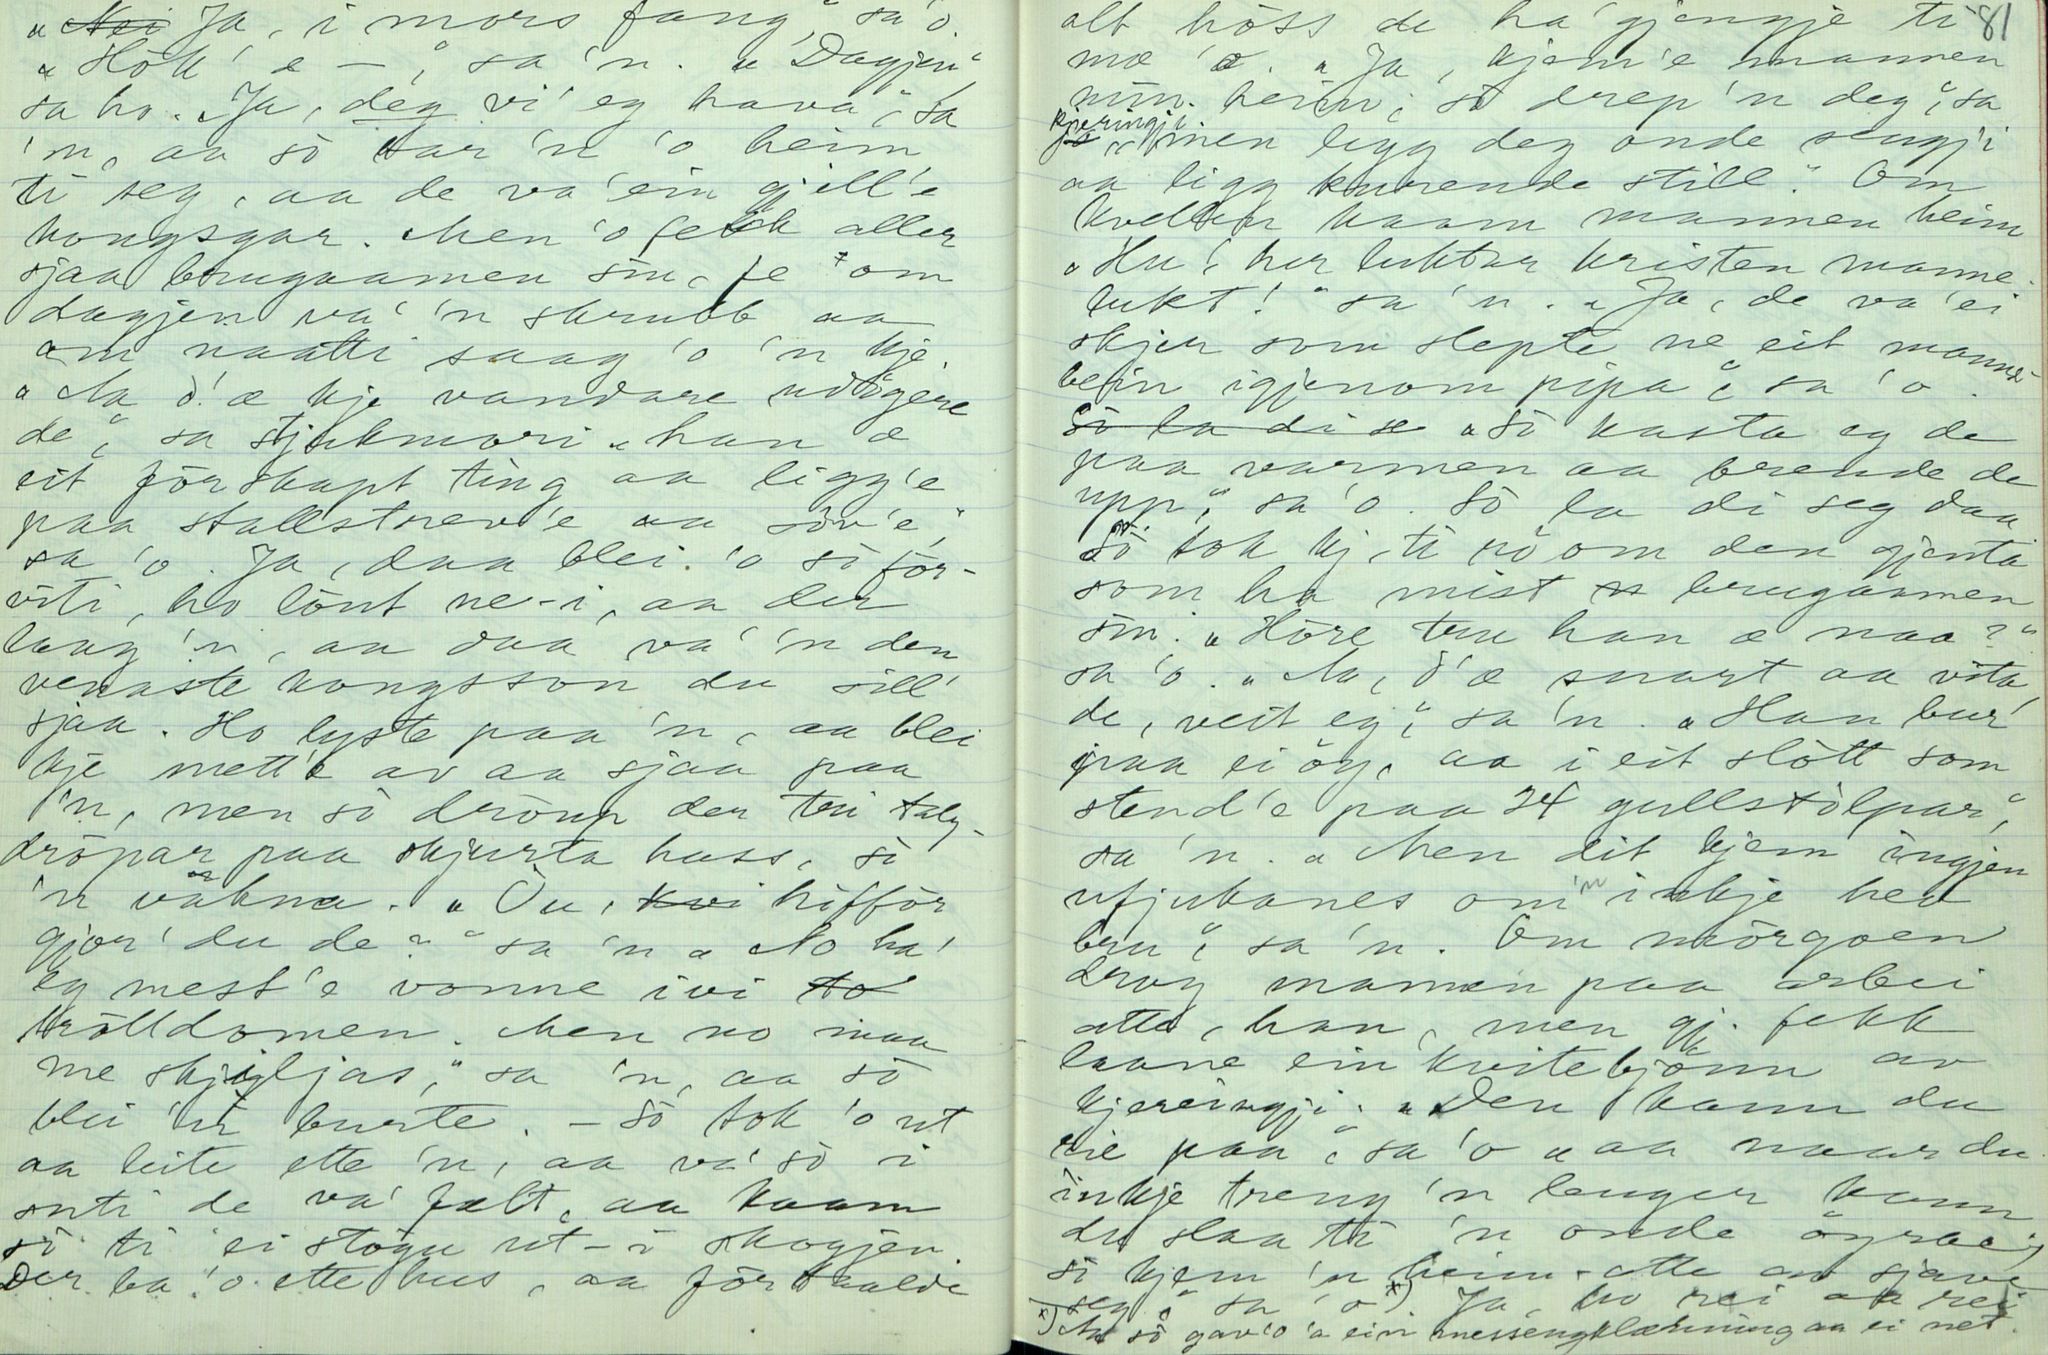 „Nei Ja, i mors fang," sa 'o.
„Hök' e –," sa 'n. „Dagjen"
sa ho. „Ja, deg vi' eg hava," sa
'n, aa sò bar 'n 'o heim
ti seg, aa de va' ein gjill'e
kongsgar. Men 'o fekk aller
sjaa brugaamen sin, fe om
dagjen va' 'n skrubb aa
om naatti saag 'o 'n kje.
„Aa d'æ kje vandare
de," sa stjukmori „han æ
eit förskapt ting aa ligg'e
paa stallstrev'e aa söv'e,"
sa 'o. Ja, daa blei 'o sò för-
viti, ho lönt ne-i, aa der
laag 'n, aa daa va' 'n den
venaste kongsson du vill'
sjaa. Ho lyste paa 'n, aa blei
kje mett'e av aa sjaa paa
'n, men sò dröup der tri talg-
dröpar paa skjurta hass, sò
'n vakna. „Òu, kvi höfför
gjor' du de?" sa 'n „No ha'
eg mest'e vonne ivi to
trölldomen. Men no maa
me skjiljas," sa 'n, aa sò
blei 'n burte. – Sò tok 'o ut
aa leite ette 'n, aa va' sò i
onti de va' fælt, aa kaam
sò ti ei stögu ut-i skogjen.
Der ba 'o ette hus, aa förtaalde
81
alt höss de ha' gjengje ti
mæ 'o. „Ja, kjem'e mannen
min heim, sò drep 'n deg," sa
kjeringji
„men legg deg onde sengji
aa ligg kurende still." Om
kvelden kaam mannen heim
„Hu, her luktar kristen manne-
lukt!" sa 'n. „Ja, de va' ei
skjer som slepte ne eit manne-
bein igjenom pipa," sa 'o.
Sò la di se „Sò kasta eg de
paa varmen aa brende de
upp," sa 'o. Sò la di seg daa
Sò tok kj. ti sò om den gjenta
som ha mist brugaamen
sin. „Höre tru han æ naa?"
sa 'o. „Aa, d'æ snart aa vita
de, veit eg," sa 'n. „Han bur
paa ei öy, aa i eit slòtt som
stend'e paa 24 gullstòlpar,"
sa 'n. „Men dit kjem ingjen
ufjukanes om 'n inkje hev
bru," sa 'n. Om mörgoen
drog mannen paa arbei
atte, han, men gj. fekk
laane ein kvitebjönn av
kjeringji. „Den kann du
rie paa," sa 'o „aa naar du
inkje treng 'n lenger kann
du slaa ti 'n onde öyrae,
sò kjem 'n heim-atte av sjave
seg," sa 'o *). Ja, ho rei aa rei
*) Aa sò gav 'o 'a ein messengplærining aa ei net.